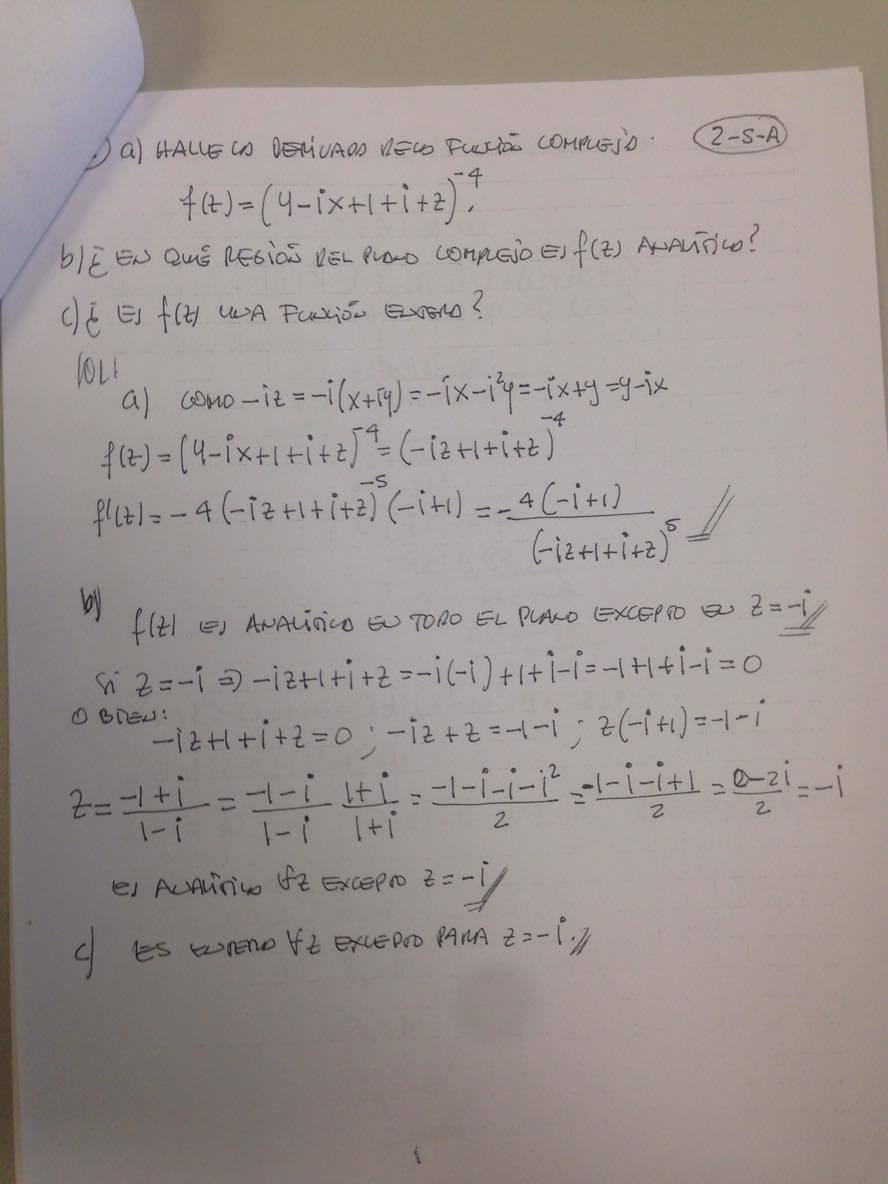 a) HALLE LA DERIVADA DE LA FUNCIÓN COMPLEJA. 2-S-A
f(z) = (y-ix+1+i+z)^-4.
b) ¿EN QUÉ REGIÓN DEL PLANO COMPLEJO ES f(z) ANALÍTICA?
c) ¿ES f(z) UNA FUNCIÓN ENTERA?
SOL:
a) COMO -iz = -i(x+iy) = -ix-i²y = -ix+y = y-ix
f(z) = (y-ix+1+i+z)^-4 = (-iz+1+i+z)^-4
f'(z) = -4(-iz+1+i+z)^-5 (-i+1) = - 4(-i+1) / (-iz+1+i+z)^5
b) f(z) ES ANALÍTICA EN TODO EL PLANO EXCEPTO EN z = -i
Si z = -i ⇒ -iz+1+i+z = -i(-i)+1+i-i = -1+1+i-i = 0
O BIEN:
-iz+1+i+z = 0 ; -iz+z = -1-i ; z(-i+1) = -1-i
z = -1+i / 1-i = -1-i / 1-i 1+i / 1+i = -1-i-i-i² / 2 = -1-i-i+1 / 2 = 0-2i / 2 = -i
ES ANALÍTICA ∀z EXCEPTO z = -i
c) ES ENTERA ∀z EXCEPTO PARA z = -i.